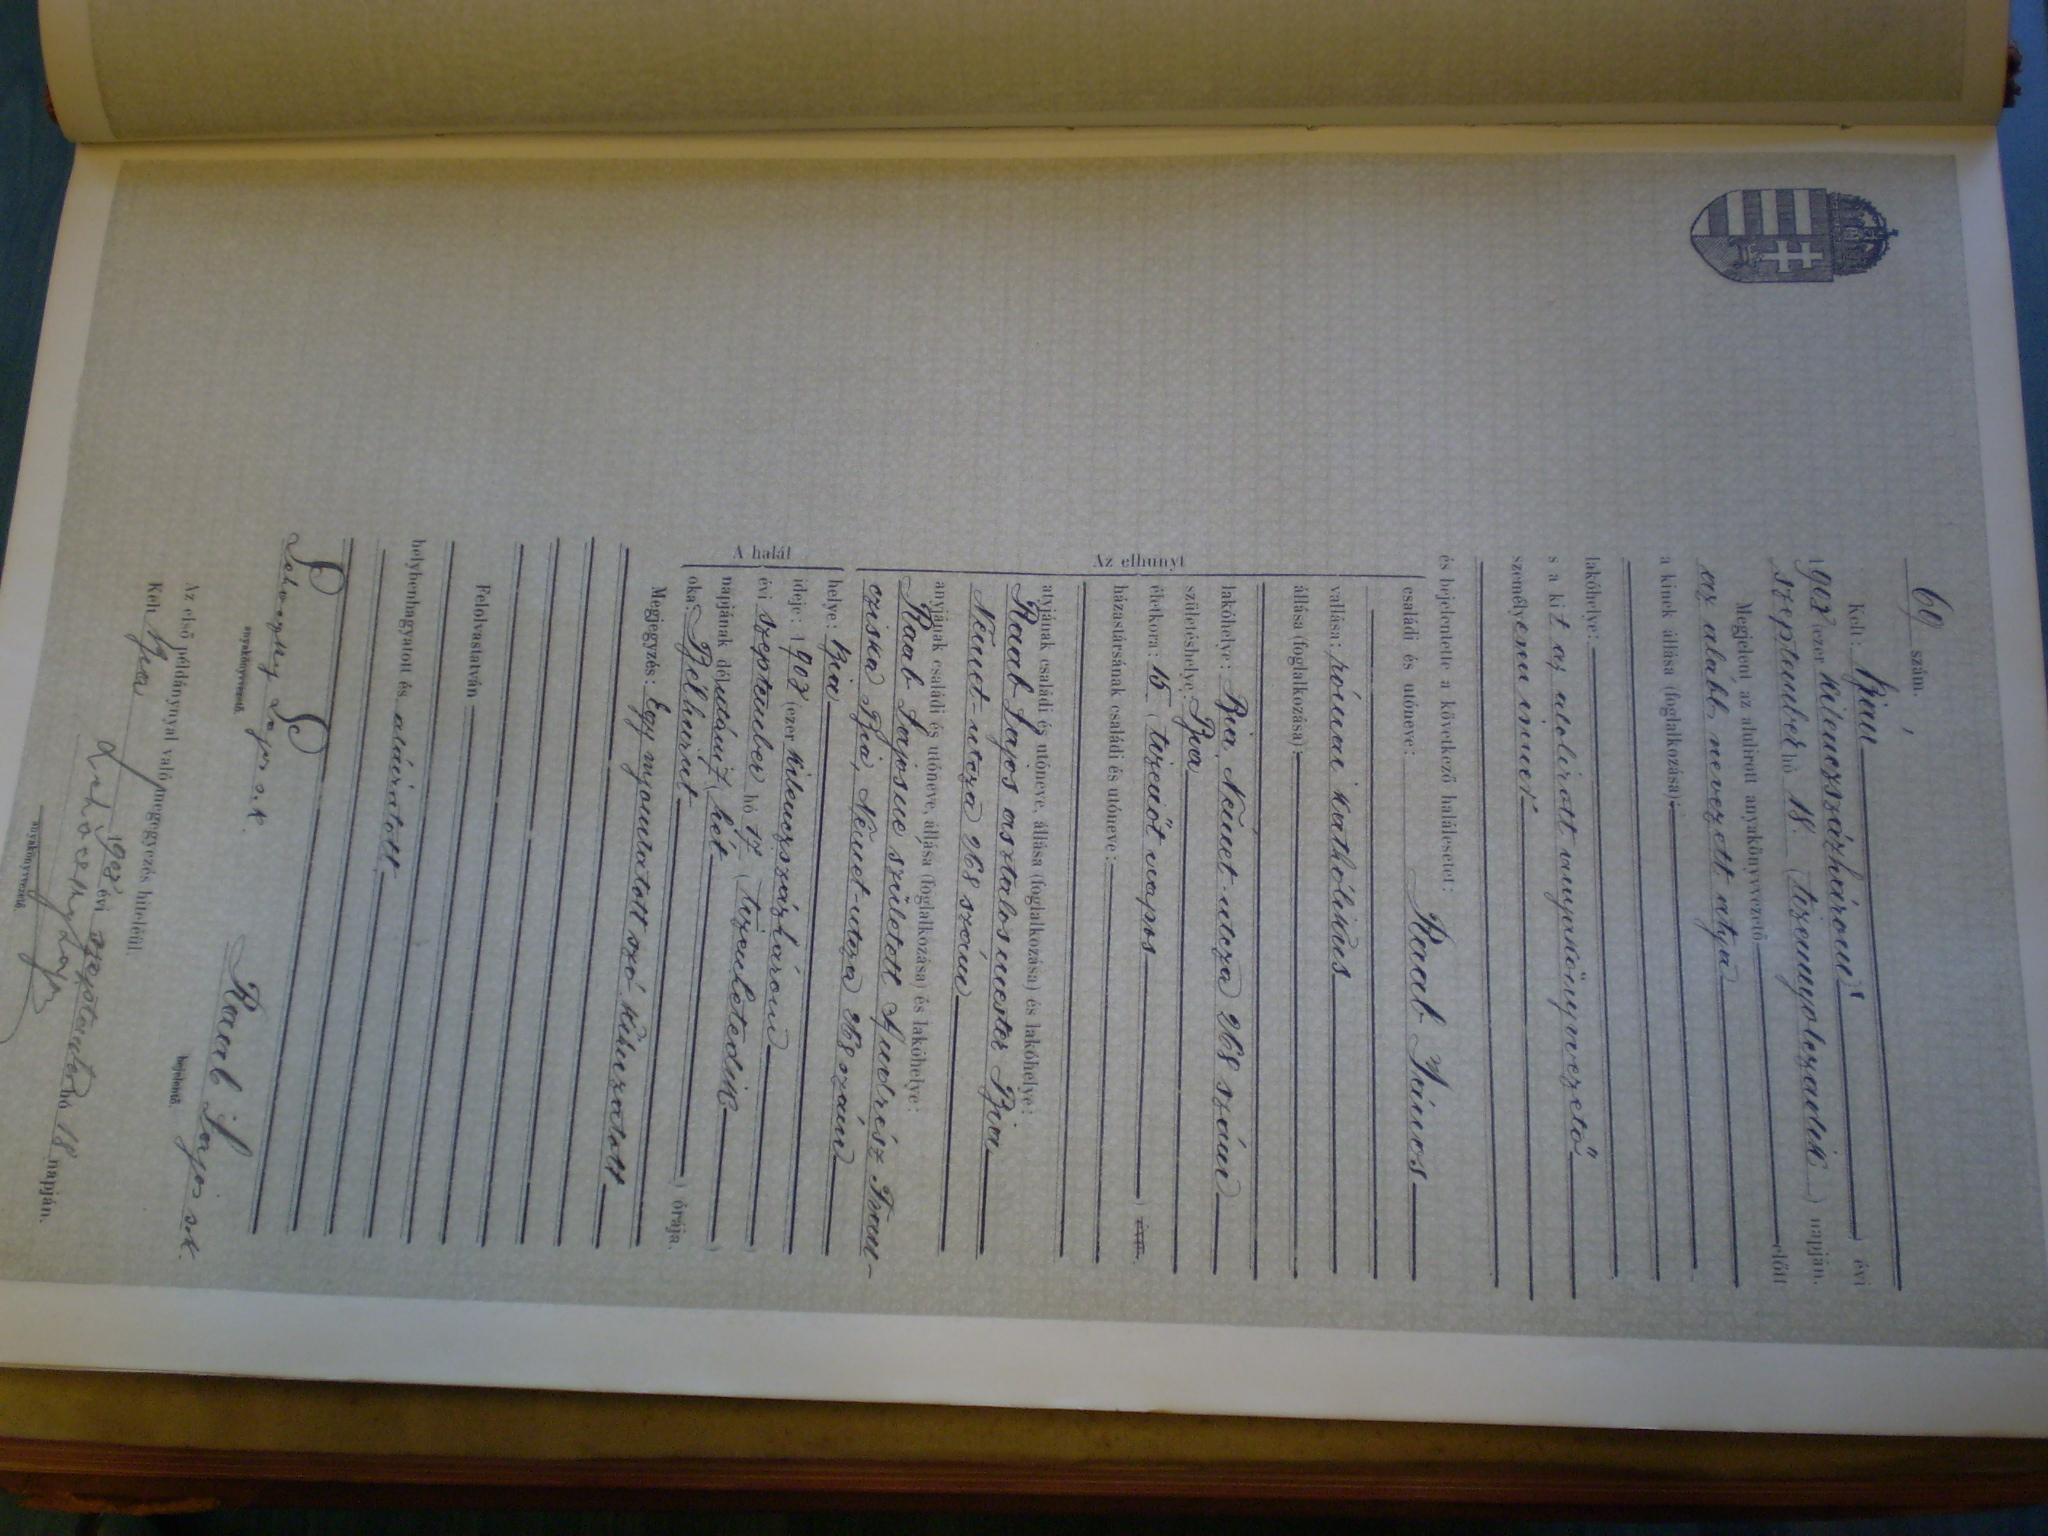 69 szám.
Kelt: Bián
1903 (ezer kilenczszázhárom) évi
szeptember hó 18. (tizennyolczadik) napján.
Megjelent az alulírott anyakönyvvezető előtt
az alább nevezett atya
a kinek állása (foglalkozása):
lakóhelye:
s a kit az alulirott anyakönyvvezető
személyesen ismer
és bejelentette a következő halálesetet:
Az elhunyt
családi és utóneve: Raab János
vallása: római katholikus
állása (foglalkozása):
lakóhelye: Bia, Német-utcza 268 szám
születéshelye: Bia
életkora: 15 (tizenöt napos) éves
házastársának családi és utóneve:
atyjának családi és utóneve, állása (foglalkozása) és lakóhelye:
Raab Lajos asztalosmester Bia
Német-utcza 268 szám
anyjának családi és utóneve, állása (foglalkozása) és lakóhelye:
Raab Lajosné született Andrész Fran-
cziska Bia, Német-utcza 268 szám
A halál
helye: Bia
ideje: 1903 (ezer kilenczszázhárom)
évi szeptember hó 17 (tizenhetedik)
napjának délután 7 (hét) órája.
oka: Bélhurut
Megjegyzés: Egy nyomtatott szó kihuzatott
Felolvastatván
helybenhagyatott és aláíratott.
P. S.
Lajos s.k.
anyakönyvvezető.
Raab Lajos s.k.
bejelentő.
Az első példánynyal való megegyezés hiteléül.
Kelt Bia 1903 évi szeptember hó 18 napján.
Lajos
anyakönyvvezető.